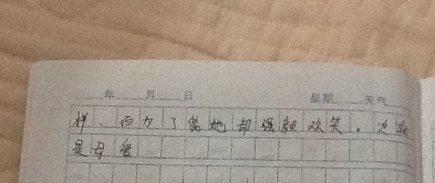 年 月 日 星期 天气
样、而为了她却强颜欢笑。这就
是母爱